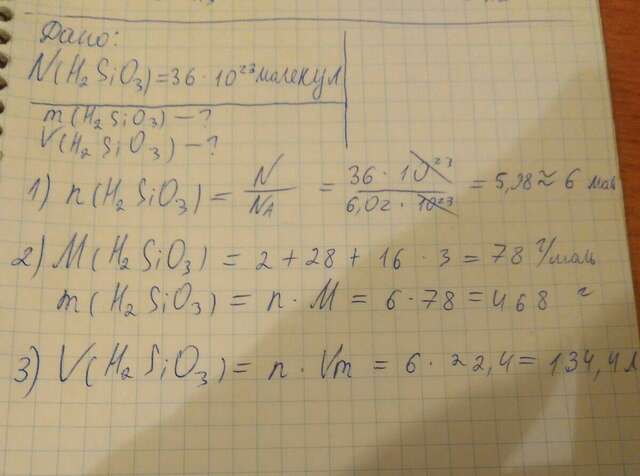 Дано:
N(H₂SiO₃)=36·10²³молекул
m(H₂SiO₃)-?
V(H₂SiO₃)-?
1) n(H₂SiO₃)= N/NA = 36·10²³/6,02·10²³ = 5,98≈6 моль
2) M(H₂SiO₃) = 2+28+16·3=78 г/моль
m(H₂SiO₃)=n·M=6·78=468 г
3) V(H₂SiO₃)=n·Vm=6·22,4=134,4 л